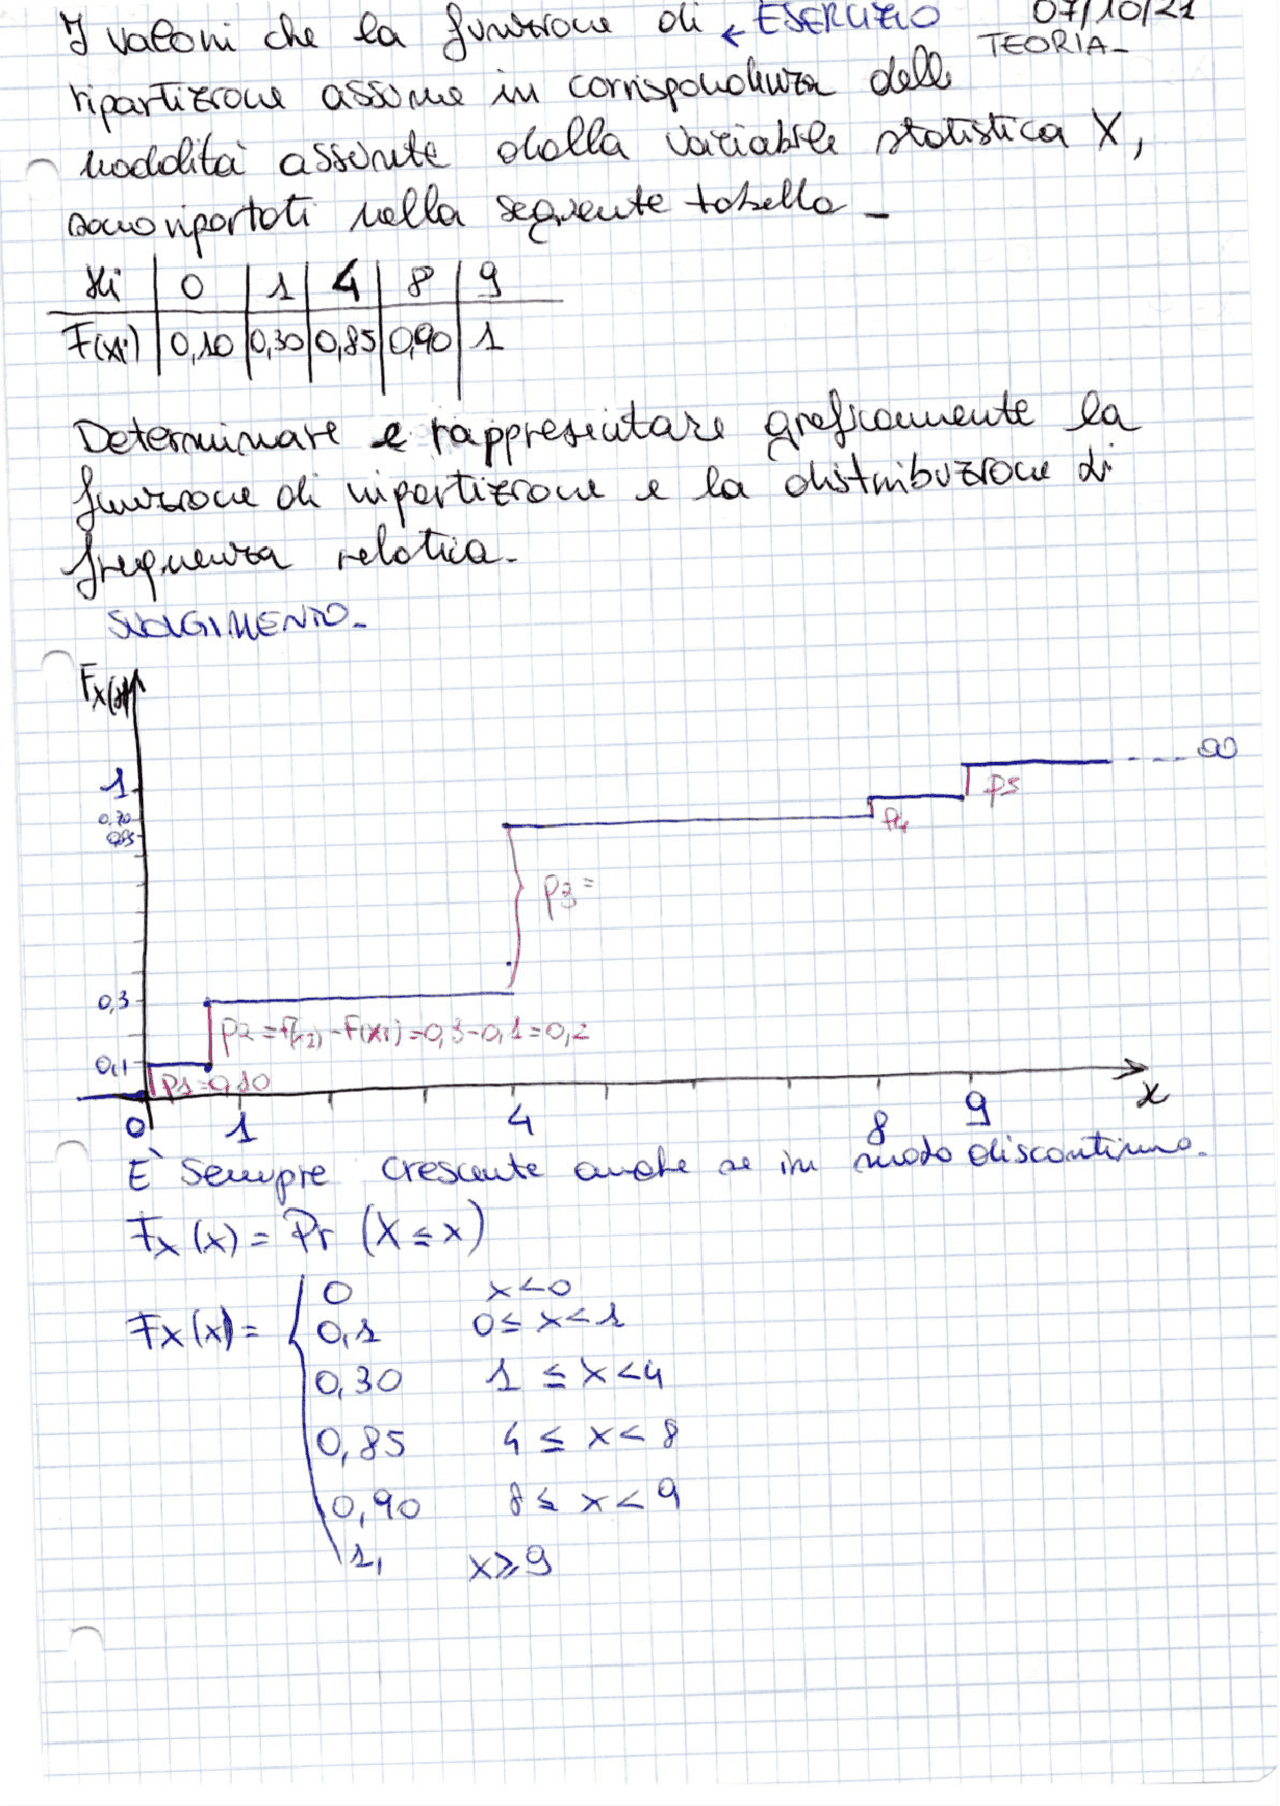 I valori che la funzione di ← ESERCIZIO 07/10/21
TEORIA-
ripartizione assume in corrispondenza delle
modalità assunte dalla variabile statistica X,
sono riportati nella seguente tabella -
xi | 0 | 1 | 4 | 8 | 9
F(xi) | 0,10 | 0,30 | 0,85 | 0,90 | 1
Determinare e rappresentare graficamente la
funzione di ripartizione e la distribuzione di
frequenza relativa.
SVOLGIMENTO-
Fx(x)
∞
1
p5
0,90
p4
0,85
p3 =
0,3
p2 = F(x2) - F(x1) = 0,3 - 0,1 = 0,2
0,1
p1 = 0,10
0 1 4 8 9 x
È sempre crescente anche se in modo discontinuo.
Fx (x) = Pr (X ≤ x)
Fx (x) =
0 x < 0
0,1 0 ≤ x < 1
0,30 1 ≤ x < 4
0,85 4 ≤ x < 8
0,90 8 ≤ x < 9
1, x ≥ 9